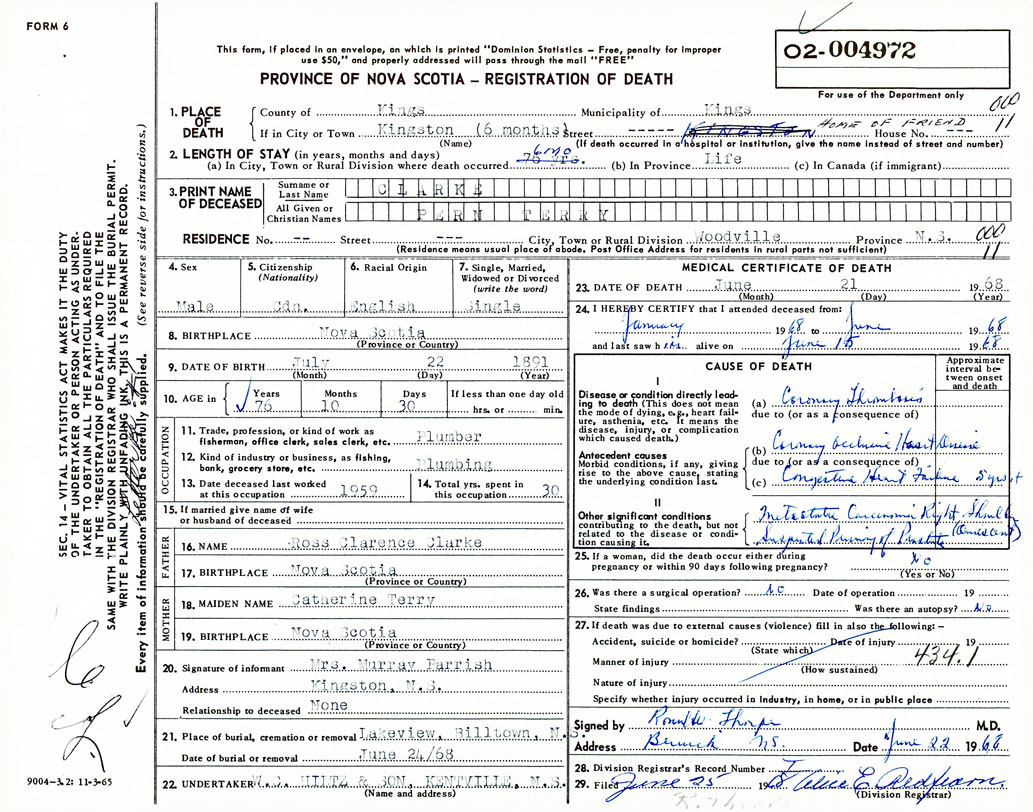 FORM 6
This form, if placed in an envelope, on which is printed "Dominion Statistics – Free, penalty for improper
use $50," and properly addressed will pass through the mail "FREE"
PROVINCE OF NOVA SCOTIA – REGISTRATION OF DEATH
02-004972
For use of the Department only
1. PLACE OF DEATH
County of Kings Municipality of Kings
If in City or Town Kingston (6 months) Street ----- HOME OF FRIEND House No. ---
(Name) (If death occurred in a hospital or institution, give the name instead of street and number)
000
11
2. LENGTH OF STAY (in years, months and days)
(a) In City, Town or Rural Division where death occurred 76 yrs. 6 mo (b) In Province Life (c) In Canada (if immigrant)
3. PRINT NAME OF DECEASED
Surname or Last Name CLARKE
All Given or Christian Names PERN TERRY
RESIDENCE No. -- Street --- City, Town or Rural Division Woodville Province N.S.
(Residence means usual place of abode. Post Office Address for residents in rural parts not sufficient)
000
11
4. Sex
Male
5. Citizenship
(Nationality)
Cdn.
6. Racial Origin
English
7. Single, Married,
Widowed or Divorced
(write the word)
Single
8. BIRTHPLACE Nova Scotia
(Province or Country)
9. DATE OF BIRTH July 22 1891
(Month) (Day) (Year)
10. AGE in
Years Months Days If less than one day old
76 10 30 hrs. or min.
OCCUPATION
11. Trade, profession, or kind of work as
fisherman, office clerk, sales clerk, etc. Plumber
12. Kind of industry or business, as fishing,
bank, grocery store, etc. Plumbing
13. Date deceased last worked
at this occupation 1959
14. Total yrs. spent in
this occupation 30
15. If married give name of wife
or husband of deceased
FATHER
16. NAME Ross Clarence Clarke
17. BIRTHPLACE Nova Scotia
(Province or Country)
MOTHER
18. MAIDEN NAME Catherine Terry
19. BIRTHPLACE Nova Scotia
(Province or Country)
20. Signature of informant Mrs. Murray Parrish
Address Kingston, N.S.
Relationship to deceased None
21. Place of burial, cremation or removal Lakeview, Billtown, N.S.
Date of burial or removal June 24/68
22. UNDERTAKER W.C. HILTZ & SON, KENTVILLE, N.S.
(Name and address)
MEDICAL CERTIFICATE OF DEATH
23. DATE OF DEATH June 21 1968
(Month) (Day) (Year)
24. I HEREBY CERTIFY that I attended deceased from:
January 1968 to June 1968
and last saw him alive on June 15 1968
CAUSE OF DEATH
Approximate
interval be-
tween onset
and death
I
Disease or condition directly lead-
ing to death (This does not mean
the mode of dying, e.g., heart fail-
ure, asthenia, etc. It means the
disease, injury, or complication
which caused death.)
(a) Coronary Thrombosis
due to (or as a consequence of)
Antecedent causes
Morbid conditions, if any, giving
rise to the above cause, stating
the underlying condition last.
(b) Coronary Occlusive Heart Disease
due to (or as a consequence of)
(c) Congestive Heart Failure
II
Other significant conditions
contributing to the death, but not
related to the disease or condi-
tion causing it.
Metastatic Carcinoma Right
Suspected Primary of Prostate
25. If a woman, did the death occur either during
pregnancy or within 90 days following pregnancy? No
(Yes or No)
26. Was there a surgical operation? No Date of operation 19
State findings Was there an autopsy? No
27. If death was due to external causes (violence) fill in also the following: –
Accident, suicide or homicide? Date of injury 19
(State which)
Manner of injury 434.1
(How sustained)
Nature of injury
Specify whether injury occurred in Industry, in home, or in public place
Signed by Thorpe M.D.
Address Berwick NS. Date June 22 1968
28. Division Registrar's Record Number
29. Filed June 25 1968
(Division Registrar)
SEC. 14 – VITAL STATISTICS ACT MAKES IT THE DUTY
OF THE UNDERTAKER OR PERSON ACTING AS UNDER-
TAKER TO OBTAIN ALL THE PARTICULARS REQUIRED
IN THE "REGISTRATION OF DEATH" AND TO FILE THE
SAME WITH THE DIVISION REGISTRAR WHO SHALL ISSUE THE BURIAL PERMIT.
WRITE PLAINLY WITH UNFADING INK, THIS IS A PERMANENT RECORD.
Every item of information should be carefully supplied. (See reverse side for instructions.)
9004-3.2: 11-3-65